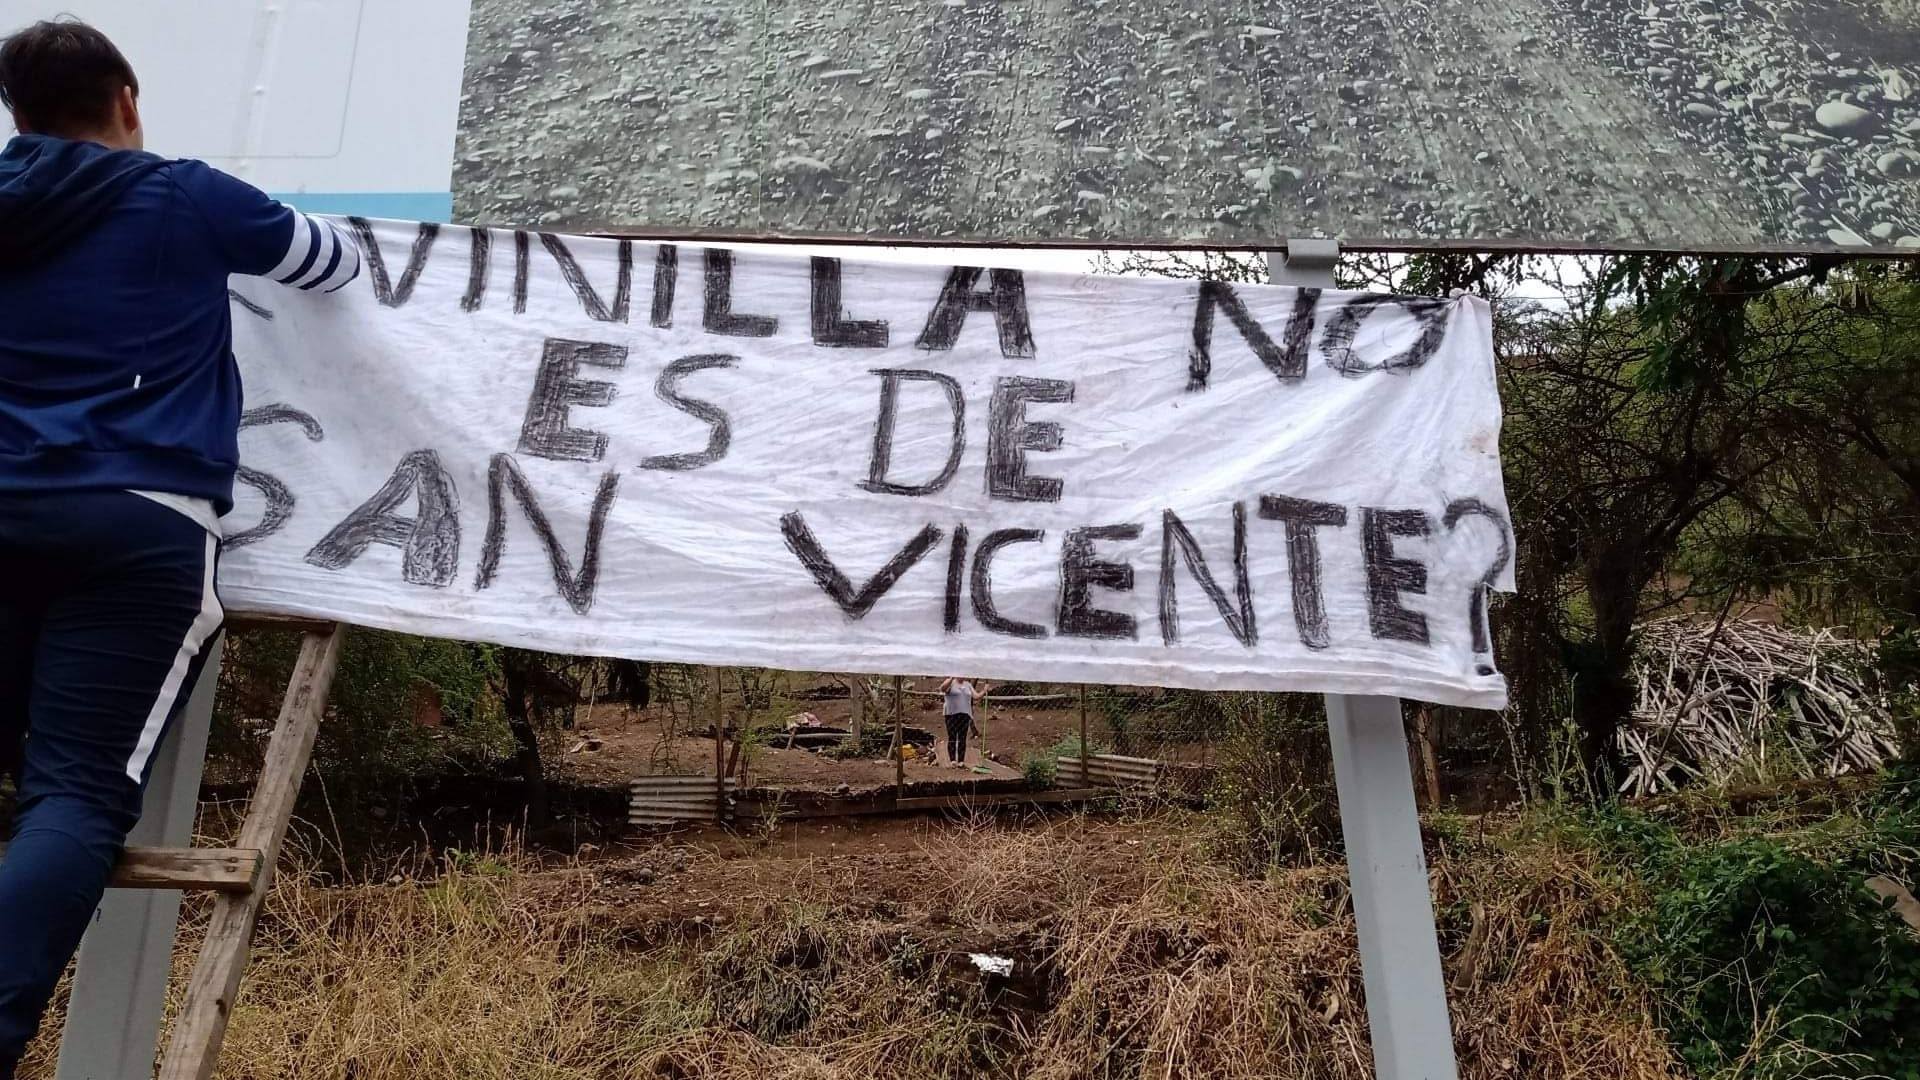 VINILLA NO
ES DE
SAN VICENTE?